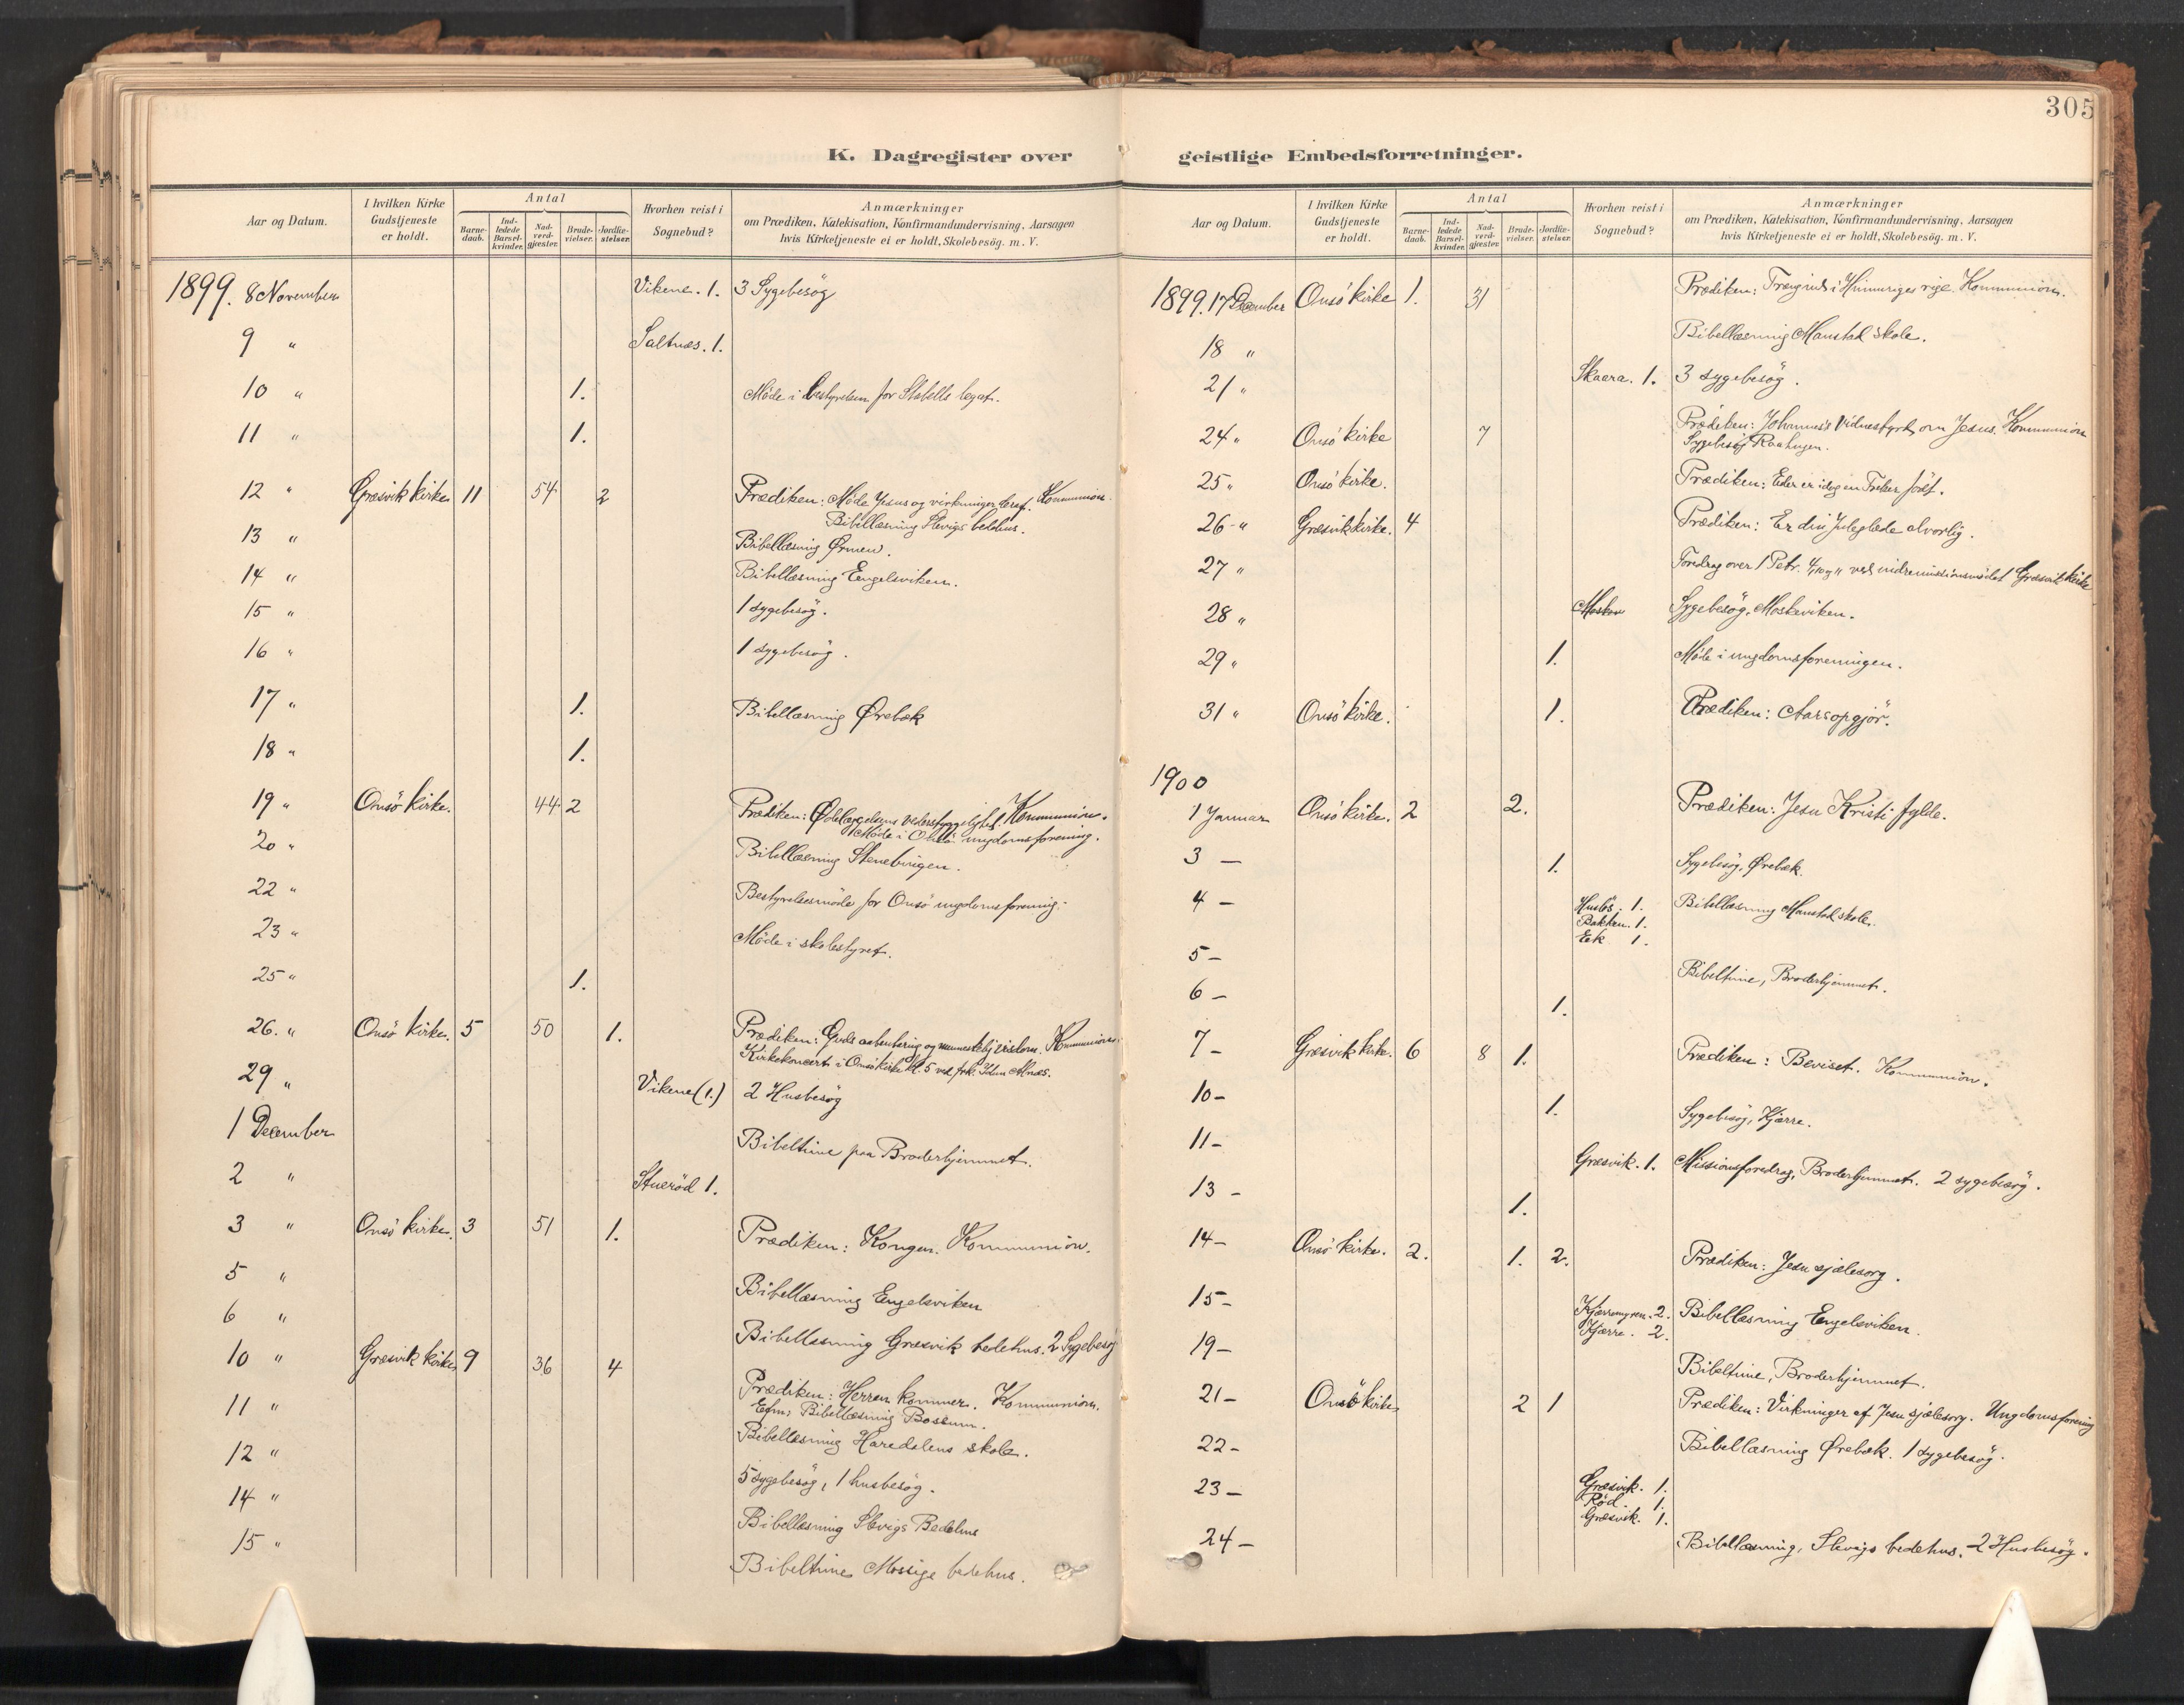 305
K. Dagregister over geistlige Embedsforretninger.
Aar og Datum. I hvilken Kirke Gudstjeneste er holdt. Antal Barnedaab. Indledede Barselkvinder. Nadverdgjester. Brudevielser. Jordfæstelser. Hvorhen reist i Sognebud? Anmærkninger om Prædiken, Katekisation, Konfirmandundervisning, Aarsagen hvis Kirketjeneste ei er holdt, Skolebesög. m. V.
1899. 8 November Vikene. 1. 3 Sygebesög
9 " Saltnæs. 1.
10 " 1. Möde i bestyrelsen for Stabells legat.
11 " 1.
12 " Græsvik kirke 11 54 2 Prædiken: Möde Jesus og virkninger deraf. Kommunion.
Bibellæsning Slevigs bedehus.
13 " Bibellæsning Ørmen.
14 " Bibellæsning Engelsviken.
15 " 1 sygebesög.
16 " 1 sygebesög.
17 " 1. Bibellæsning Ørebæk
18 " 1.
19 " Onsö kirke. 44 2 Prædiken: Ödelæggelsens vederstyggelighed Kommunion.
Möde i Onsö ungdomsforening.
20 " Bibellæsning Stenebingen.
22 " Bestyrelsesmöde for Onsö ungdomsforening.
23 " Möde i skolestyret.
25 " 1.
26. " Onsö kirke. 5 50 1. Prædiken: Guds aabenbaring og menneskelig visdom. Kommunion.
Kirkekoncert i Onsö kirke kl. 5 ved frk.
29 " Vikene (1.) 2 Husbesög
1 December Bibeltime paa Broderhjemmet.
2 " Stueröd 1.
3 " Onsö kirke. 3 51 1. Prædiken: Kongen. Kommunion.
5 " Bibellæsning Engelsviken
6 " Bibellæsning Græsvik bedehus. 2 Sygebesög
10 " Græsvik kirke 9 36 4 Prædiken: Herren kommer. Kommunion.
Efm: Bibellæsning Bossum.
11 " Bibellæsning Haredalens skole.
12 " 5 sygebesög, 1 husbesög.
14 " Bibellæsning Slevigs Bedehus
15 " Bibeltime Mossige bedehus.
Aar og Datum. I hvilken Kirke Gudstjeneste er holdt. Antal Barnedaab. Indledede Barselkvinder. Nadverdgjester. Brudevielser. Jordfæstelser. Hvorhen reist i Sognebud? Anmærkninger om Prædiken, Katekisation, Konfirmandundervisning, Aarsagen hvis Kirketjeneste ei er holdt, Skolebesög. m. V.
1899. 17 December Onsö kirke 1. 31 Prædiken: i Himmeriges rige. Kommunion.
18 " Bibellæsning Manstad skole.
21 " Skaara. 1. 3 sygebesög.
24 " Onsö kirke 7 Prædiken: Johannes's Vidnesbyrd om Jesus. Kommunion
Sygebesög Raahugen.
25 " Onsö kirke. Prædiken: Eder er idag en Frelser födt.
26 " Græsvik kirke. 4 Prædiken: Er din Juleglæde alvorlig.
27 " Foredrag over 1 Petr. 4, 10 og 11 ved indremissionsmödet Græsvik kirke
28 " Mosken Sygebesög. Moskeviken.
29 " 1. Möde i ungdomsforeningen.
31 " Onsö kirke. 1. Prædiken: Aarsopgjör.
1900
1 Januar Onsö kirke. 2 2. Prædiken: Jesu Kristi fylde.
3 — 1. Sygebesög, Ørebæk.
4 — Huslös. 1. Bibellæsning Manstad skole.
Bakken. 1.
Eek 1.
5 — Bibeltime, Broderhjemmet.
6 — 1.
7 — Græsvik kirke. 6 8 1. Prædiken: Beviset. Kommunion.
10 — 1. Sygebesög, Kjærre.
11 — Græsvik. 1. Missionsforedrag, Broderhjemmet. 2 sygebesög.
13 — 1.
14 — Onsö kirke. 2. 1. 2. Prædiken: Jesu sjælesorg.
15 — Kjærremyren. 2. Bibellæsning Engelsviken.
Kjærre. 2.
19 — Bibeltime, Broderhjemmet.
21 — Onsö kirke 2 1 Prædiken: Virkninger af Jesu sjælesorg. Ungdomsforening
22 — Bibellæsning Ørebæk. 1 sygebesög.
23 — Græsvik. 1.
Röd. 1.
Græsvik. 1.
24 — Bibellæsning, Slevigs bedehus. 2 Husbesög.